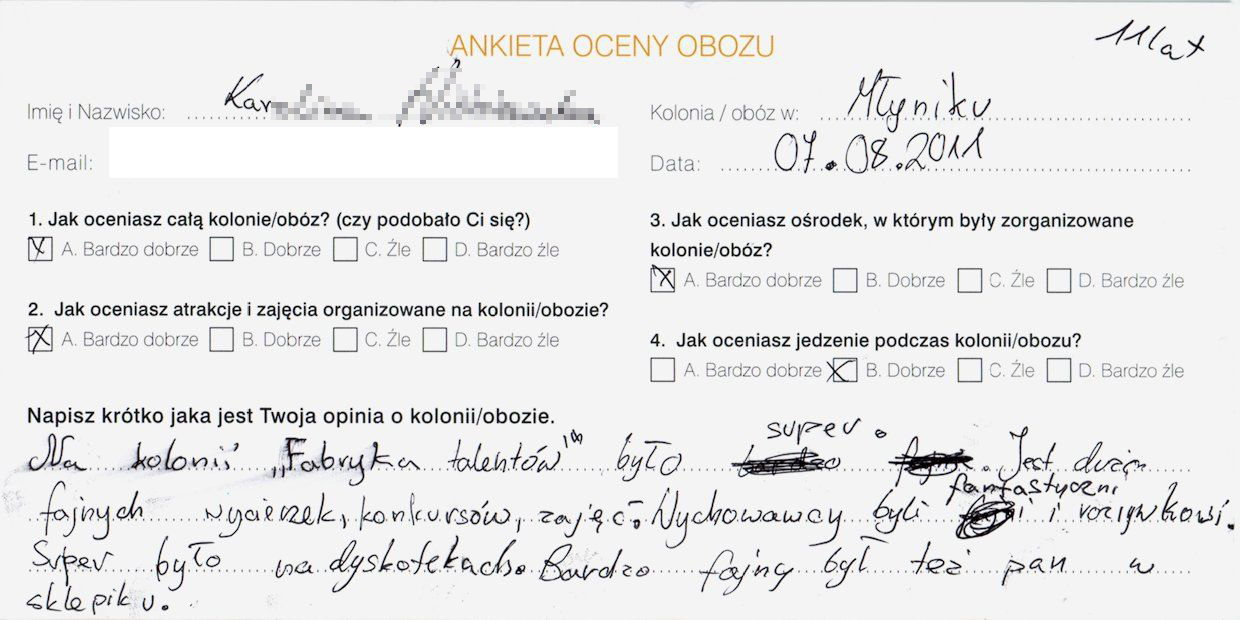 ANKIETA OCENY OBOZU
11 lat
Imię i Nazwisko:
Kolonia / obóz w: Młyniku
E-mail:
Data: 07.08.2011
1. Jak oceniasz całą kolonie/obóz? (czy podobało Ci się?)
X A. Bardzo dobrze B. Dobrze C. Źle D. Bardzo źle
2. Jak oceniasz atrakcje i zajęcia organizowane na kolonii/obozie?
X A. Bardzo dobrze B. Dobrze C. Źle D. Bardzo źle
3. Jak oceniasz ośrodek, w którym były zorganizowane
kolonie/obóz?
X A. Bardzo dobrze B. Dobrze C. Źle D. Bardzo źle
4. Jak oceniasz jedzenie podczas kolonii/obozu?
A. Bardzo dobrze X B. Dobrze C. Źle D. Bardzo źle
Napisz krótko jaka jest Twoja opinia o kolonii/obozie.
super.
Na kolonii „Fabryka talentów" było bardzo . Jest dużo
fantastyczni
fajnych wycierzek, konkursów, zajęć. Wychowawcy byli i rozrywkowi.
Super było na dyskotekach. Bardzo fajny był też pan w
sklepiku.